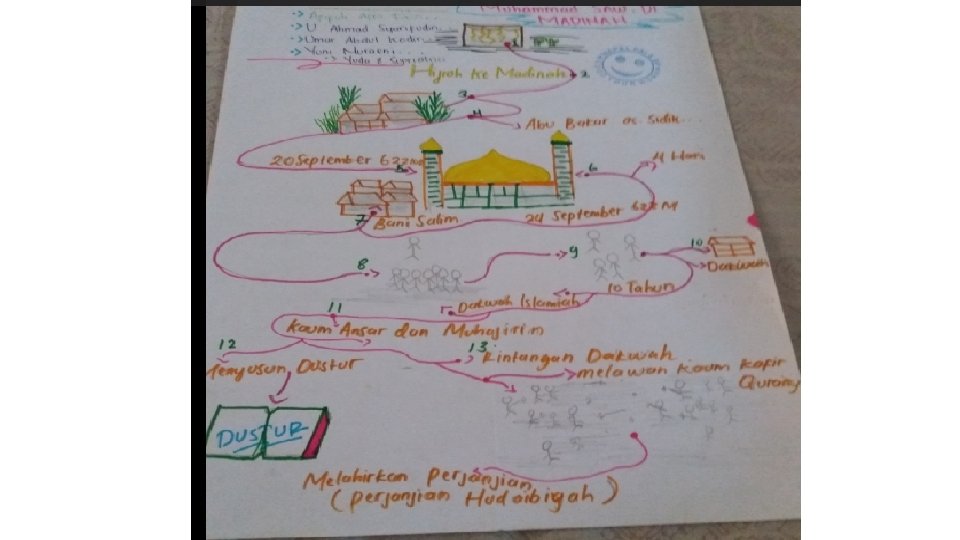 Muhammad SAW. di
MADINAH
-> U Ahmad
-> Umar Abdul
-> Yani Nuraeni...
1
Hijrah ke Madinah
2
3
4
Abu Bakar as. Sidik...
20 September 622 M
5
6
4 Hari
7
Bani Salim
24 September 622 M
8
9
10
Dakwah
10 Tahun
Dakwah Islamiah
11
Kaum Ansar dan Muhajirin
12
13.
Rintangan Dakwah
Penyusun Dustur
melawan kaum kafir
Quraisy
DUSTUR
Melahirkan perjanjian
(perjanjian Hudaibiyah)